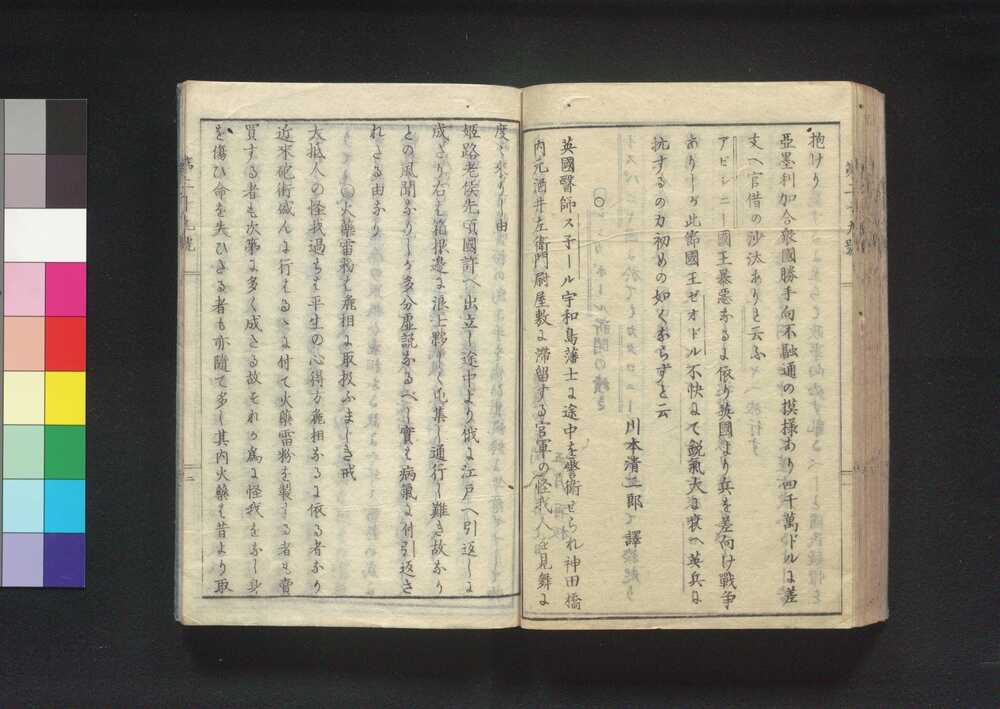 抱けり
亜墨利加合衆國勝手向不融通の模様あり四千萬ドルは差
支へ官借の沙汰ありと云ふ
アビシニー國王暴悪なるに依り英國より兵を差向け戦争
ありしが此節國王ゼオドル不快にて鋭氣大に衰へ英兵に
抗するの力初めの如くならずと云
川本清二郎 譯
英國醫師ス子ール宇和島藩士に途中を警衛せられ神田橋
内元酒井左衛門尉屋敷に滞留する官軍の怪我人を見舞に
度々来りし由
姫路老侯先頃國許へ出立し途中より俄に江戸へ引返しに
成たり右は箱根邊に浪士夥しく屯集し通行し難き故なり
との風聞なりしが多分虚説なるべし實は病氣に付引返さ
れたる由なり
○火藥雷粉を麁相に取扱ふまじき戒
大抵人の怪我過ちは平生の心得方麁相なるに依る者なり
近来砲術盛んに行はるゝに付て火藥雷粉を製する者も賣
買する者も次第に多く成たる故それが為に怪我をなし身
を傷ひ命を失ひたる者も亦隨て多し其内火藥は昔より取
第二十九號
二